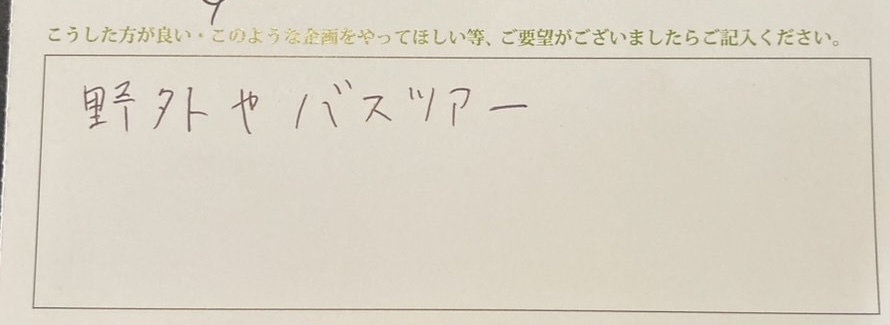 こうした方が良い・このような企画をやってほしい等、ご要望がございましたらご記入ください。
野外やバスツアー